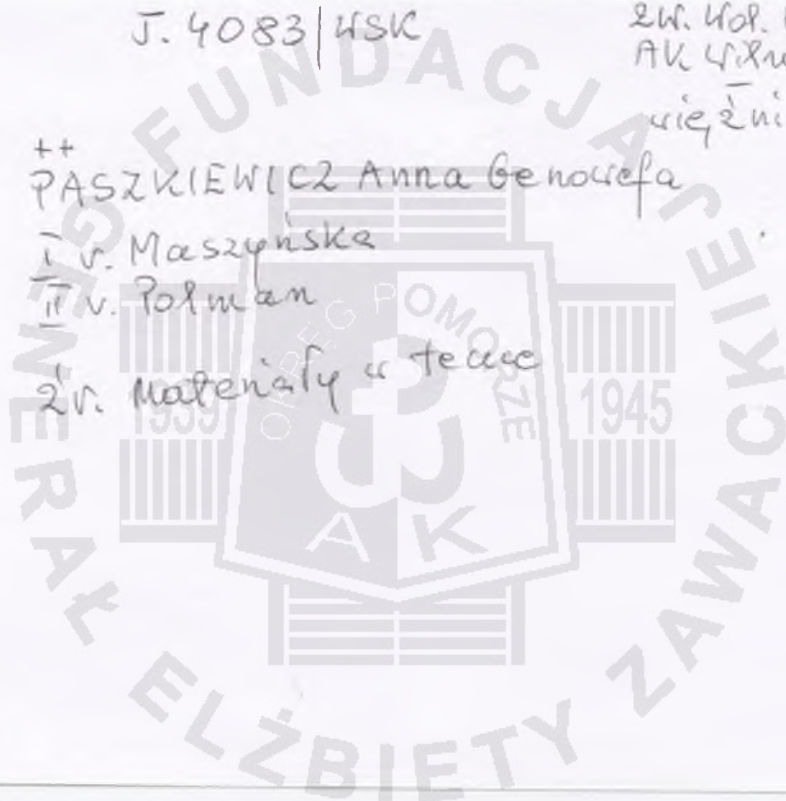 J. 4083/WSK
zw. Wol.
AK
++
PASZKIEWICZ Anna Genowefa
I v. Maszyńska
II v. Polman
źr. Materiały w teczce
FUNDACJA GENERAŁ ELŻBIETY ZAWACKIEJ
OKRĘG POMORZE
1939 1945
AK